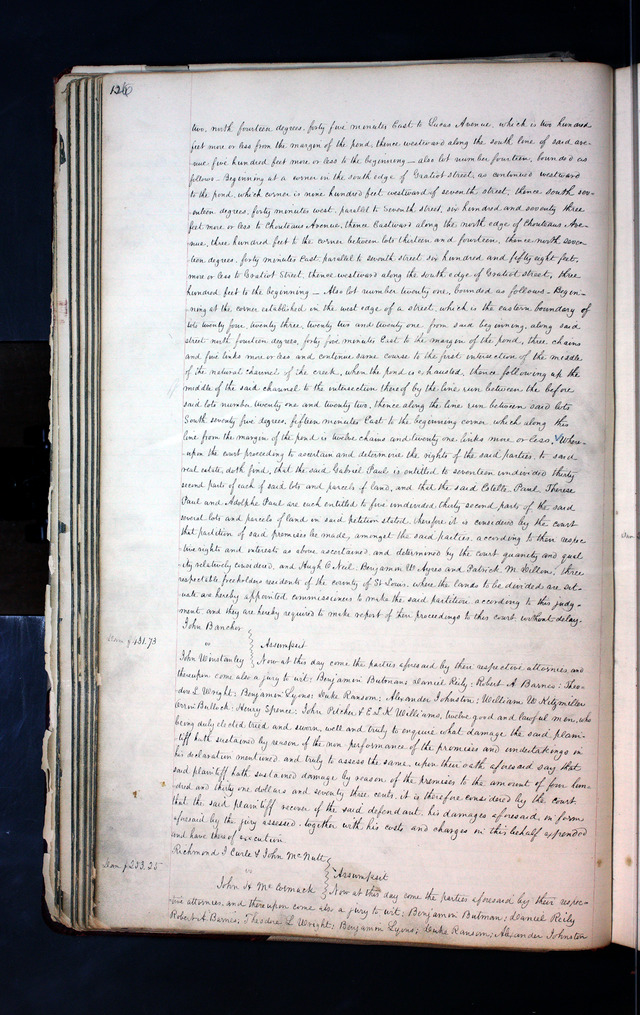 126
two, north fourteen degrees, forty five minutes East to Lucas Avenue, which is two hundred
feet more or less from the margin of the pond, thence westward along the south line of said ave-
nue five hundred feet more or less to the beginning — also lot number fourteen, bounded as
follows – Beginning at a corner in the south edge of Gratiot street, as continued westward
to the pond, which corner is nine hundred feet westward of seventh street, thence south sev-
enteen degrees, forty minutes west, parallel to Seventh street, six hundred and seventy three
feet more or less to Chouteaus Avenue, thence Eastward along the north edge of Chouteaus Ave-
nue, three hundred feet to the corner between lots thirteen and fourteen, thence north seven-
teen degrees, forty minutes East parallel to seventh street six hundred and fifty eight feet,
more or less to Gratiot Street, thence westward along the south edge of Gratiot street, three
hundred feet to the beginning — Also lot number twenty one, bounded as follows – Begin-
ning at the corner established in the west edge of a street, which is the eastern boundary of
lots twenty four, twenty three, twenty two and twenty one from said beginning, along said
street north fourteen degrees, forty five minutes East to the margin of the pond, three chains
and five links more or less and continue same course to the first intersection of the middle
of the natural channel of the creek, when the pond is exhausted, thence following up the
middle of the said channel to the intersection thereof by the line run between the before
said lots number twenty one and twenty two, thence along the line run between said lots
South seventy five degrees, fifteen minutes East to the beginning corner which along this
line from the margin of the pond is twelve chains and twenty one links more or less. Where-
upon the court proceeding to ascertain and determine the rights of the said parties, to said
real estate, doth find, that the said Gabriel Paul is entitled to seventeen undivided thirty
second parts of each of said lots and parcels of land, and that the said Estelle Paul Therese
Paul and Adolphe Paul are each entitled to five undivided thirty second parts of the said
several lots and parcels of land in said petition stated, therefore it is considered by the court
that partition of said premises be made, amongst the said parties, according to their respec-
tive rights and interests as above ascertained, and determined by the court quantity and qual-
ity relatively considered, and Hugh O Neil, Benjamin W Ayres and Patrick M. Dillon, three
respectable freeholders residents of the county of St Louis, where the lands to be divided are sit-
uate are hereby appointed commissioners to make the said partition according to this judg-
ment and they are hereby required to make report of their proceedings to this court without delay.
John Bancker
vs } Assumpsit
Dam $431.73
John Winstanley } Now at this day come the parties aforesaid by their respective attornies, and
thereupon come also a jury to wit; Benjamin Butman; Daniel Reily; Robert A Barnes; Theo-
dore L. Wright; Benjamin Lyons; Luke Ransom; Alexander Johnston; William W Kitzmiller
Orrin Bullock; Henry Spence; John Pitcher & E L K Williams, twelve good and lawful men, who
being duly elected tried and sworn, well and truly to enquire what damage the said plain-
tiff hath sustained by reason of the non performance of the promises and undertakings in
his declaration mentioned and truly to assess the same, upon their oath aforesaid say that
said plaintiff hath sustained damage by reason of the premises to the amount of four hun-
dred and thirty one dollars and seventy three cents, it is therefore considered by the court
that the said plaintiff recover of the said defendant, his damages aforesaid, in form
aforesaid by the jury assessed together with his costs and charges in this behalf expended
and have thereof execution
Richmond J Curle & John McNutt
vs } Assumpsit
Dam $233.25
John H McCormack } Now at this day come the parties aforesaid by their respec-
tive attornies, and thereupon come also a jury to wit; Benjamin Butman; Daniel Reily
Robert A Barnes; Theodore L Wright; Benjamin Lyons; Luke Ransom; Alexander Johnston